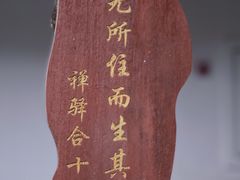 无所住而生其
禅驿合十